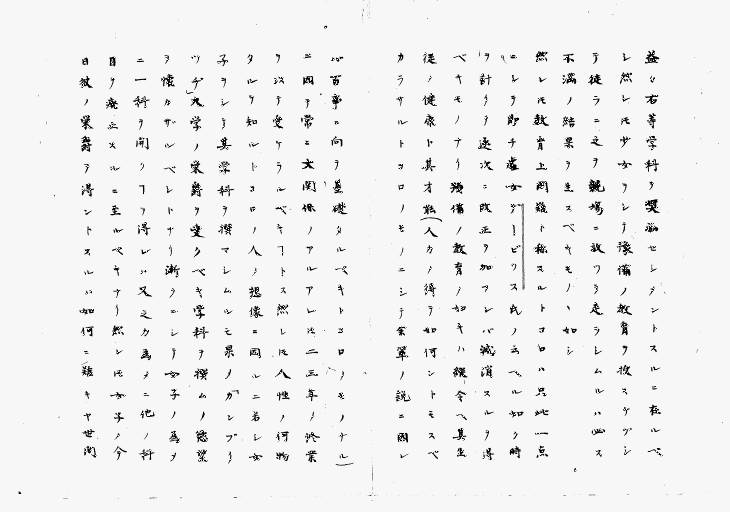 益々右等学科ヲ奨励セシメントスルニ在ルベ
シ然レ𪜈少女ヲシテ予備ノ教育ヲ授スケヅシ
テ徒ラニ之ヲ競場ニ放ツヲ走ラシムルハ必ス
不満ノ結果ヲ生スベキモノヽ如シ
然レ𪜈教育上困難ト称スルトコロハ只此一点
ニシテ即チ盧女デービリス氏ノ云ヘル如ク時
ヲ計リテ逐次ニ改正ヲ加フレバ減消スルヲ得
ベキモノナリ予備ノ教育ノ如キハ縦令ヘ其生
徒ノ健康ト其才能(人力ノ得テ如何ントモスベ
カラサルトコロノモノニシテ余輩ノ説ニ因レ
バ百事ニ向テ基礎タルベキトコロノモノナル)
ニ因テ常ニ大関係ノアルアレ𪜈二三年ノ修業
ヲ以テ受ケラルベキヿトス然レ𪜈人性ノ何物
タルヲ知ルトコロノ人ノ想像ニ因ルニ若シ女
子ヲシテ其学科ヲ撰マシムルモ最ノ「カンブリ
ッヂ」大学ノ栄爵ヲ受クベキ学科ヲ撰ムノ慾望
ヲ懐カザルベシトナリ漸ラニシテ女子ノ為メ
ニ一科ヲ開クヿヲ得レハ又之カ為メニ他ノ科
目ヲ廃止スルニ至ルベキナリ然レ𪜈女子ノ今
日彼ノ栄爵ヲ得ントスルハ如何ニ難キヤ世間